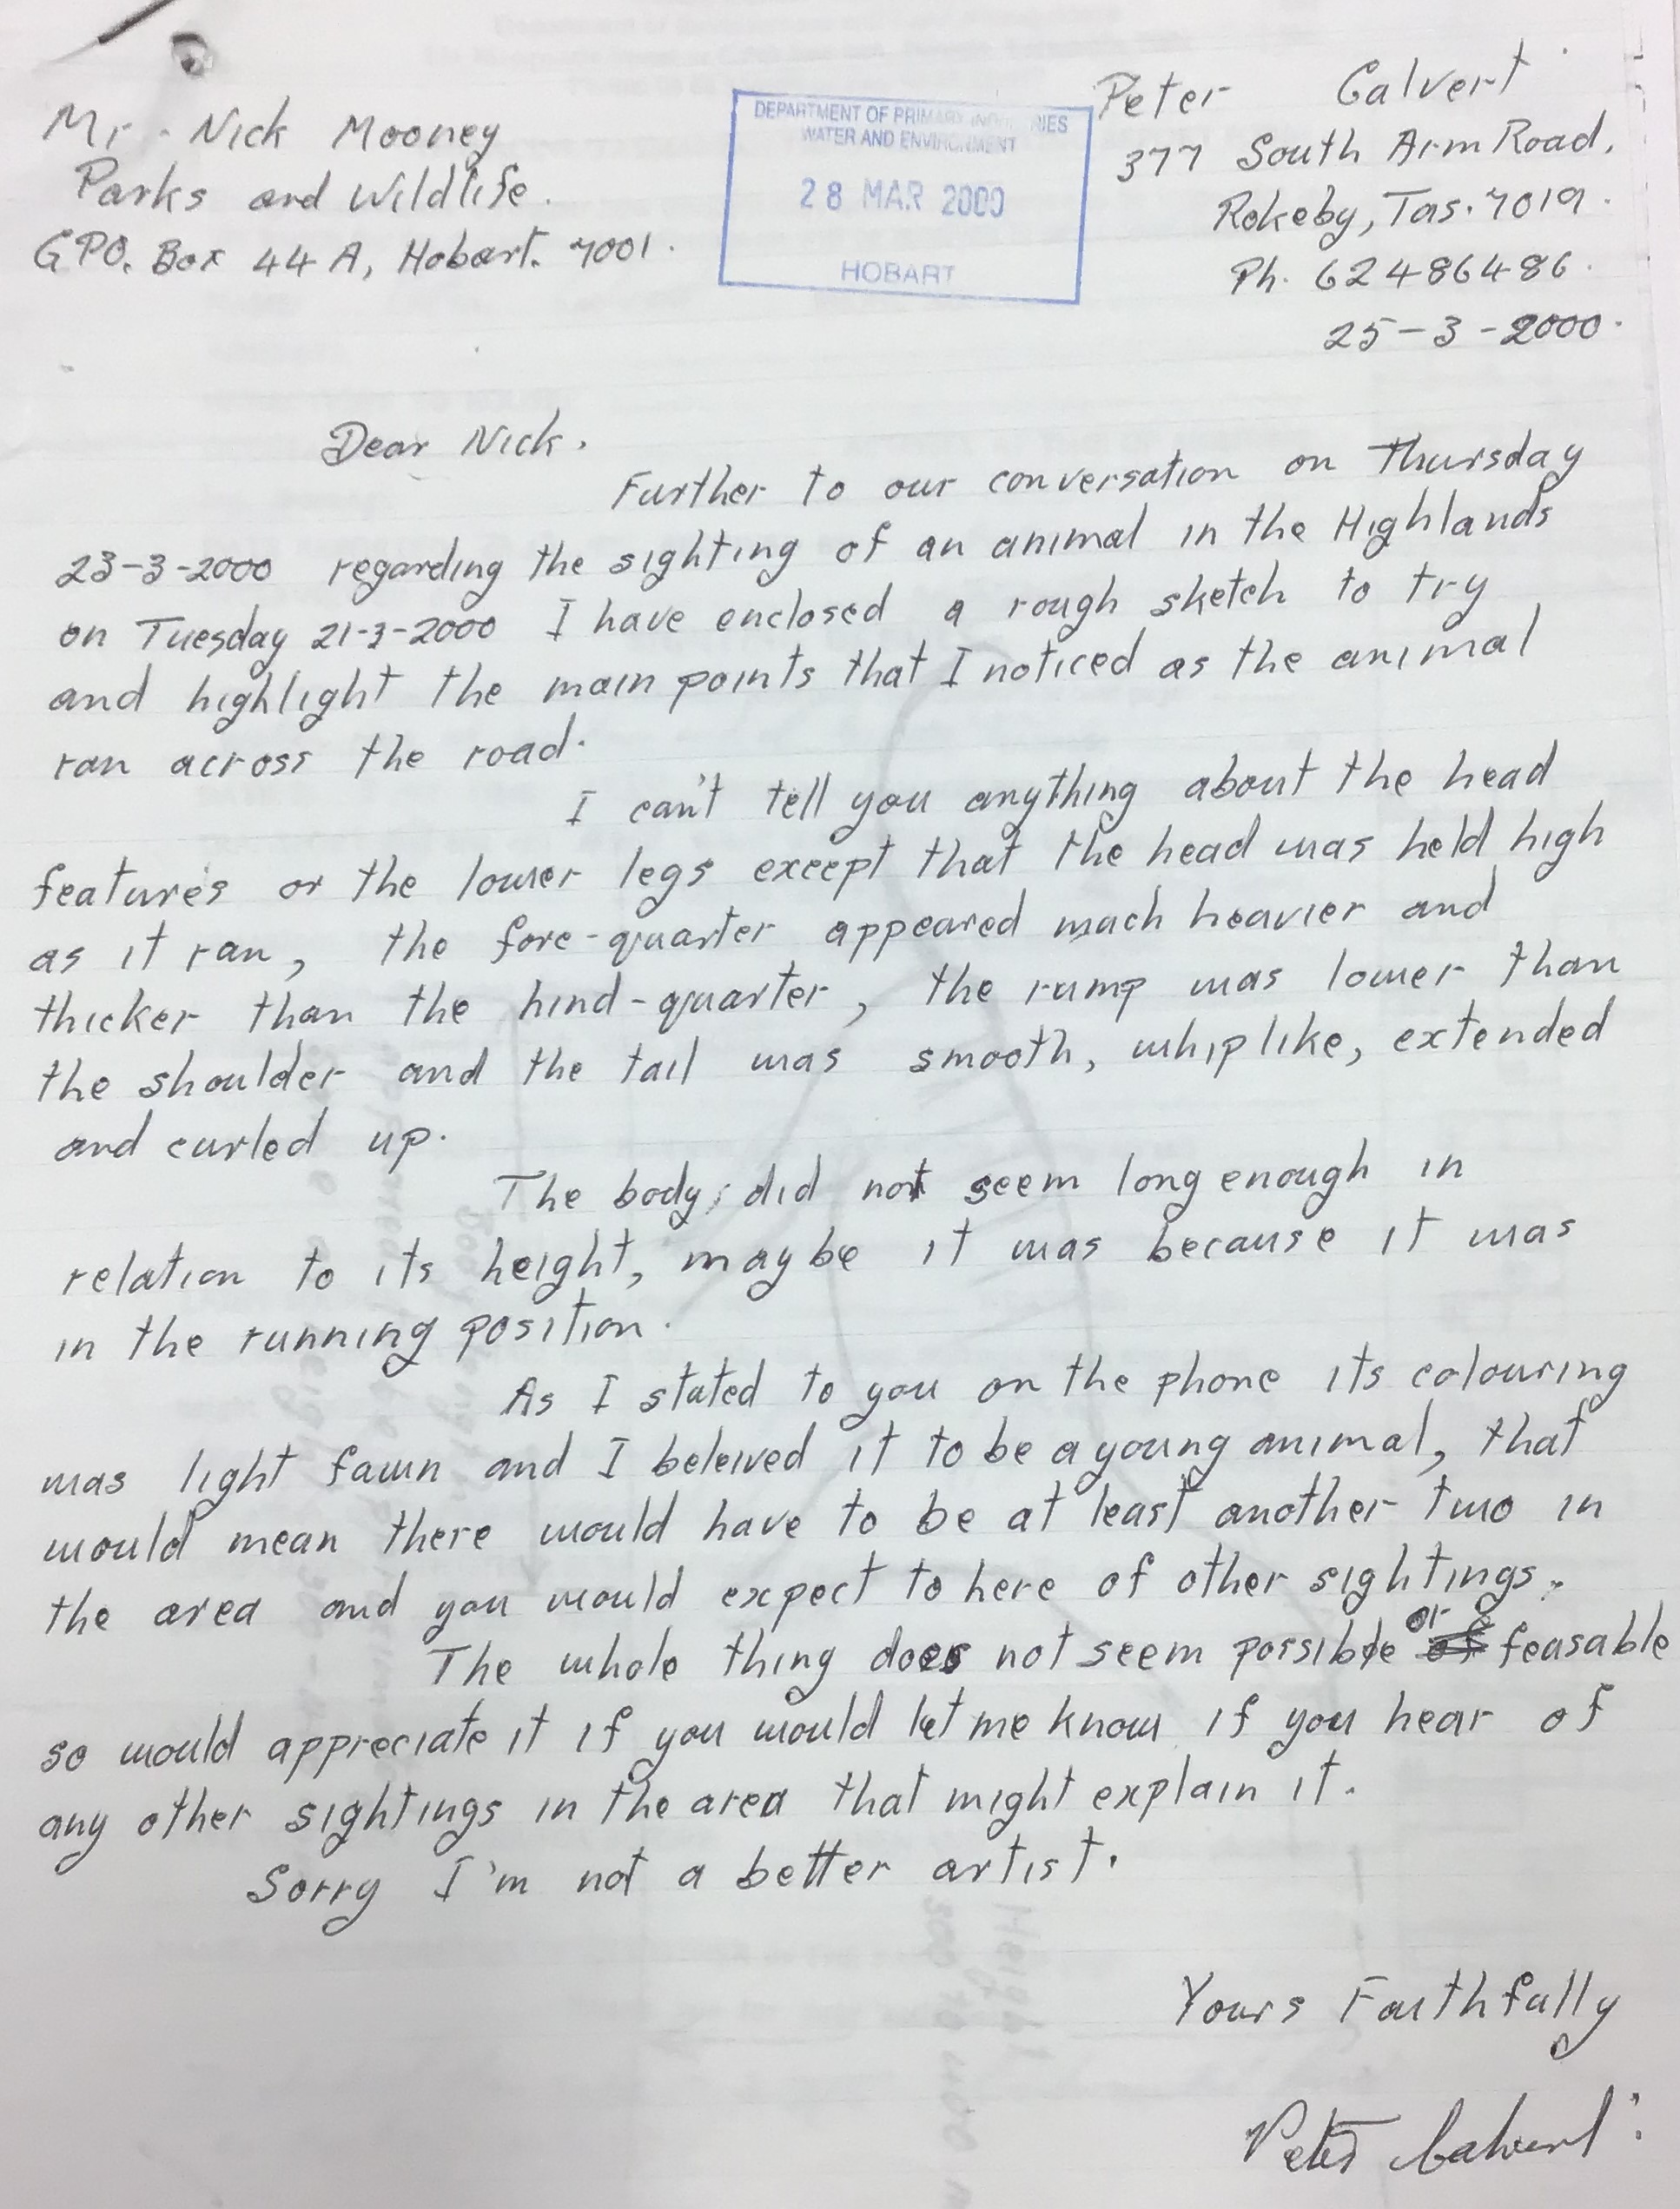 Mr. Nick Mooney
Parks and Wildlife.
GPO. Box 44 A, Hobart. 7001.
DEPARTMENT OF PRIMARY INDUSTRIES
WATER AND ENVIRONMENT
28 MAR 2000
HOBART
Peter Calvert
377 South Arm Road,
Rokeby, Tas. 7019.
Ph. 62486486.
25-3-2000.
Dear Nick.
Further to our conversation on Thursday
23-3-2000 regarding the sighting of an animal in the Highlands
on Tuesday 21-3-2000 I have enclosed a rough sketch to try
and highlight the main points that I noticed as the animal
ran across the road.
I can't tell you anything about the head
features or the lower legs except that the head was held high
as it ran, the fore-quarter appeared much heavier and
thicker than the hind-quarter, the rump was lower than
the shoulder and the tail was smooth, whiplike, extended
and curled up.
The body, did not seem long enough in
relation to its height, maybe it was because it was
in the running position.
As I stated to you on the phone its colouring
was light fawn and I beleived it to be a young animal, that
would mean there would have to be at least another two in
the area and you would expect to here of other sightings.
The whole thing does not seem possible or feasable
so would appreciate it if you would let me know if you hear of
any other sightings in the area that might explain it.
Sorry I'm not a better artist.
Yours Faithfully
Peter Calvert